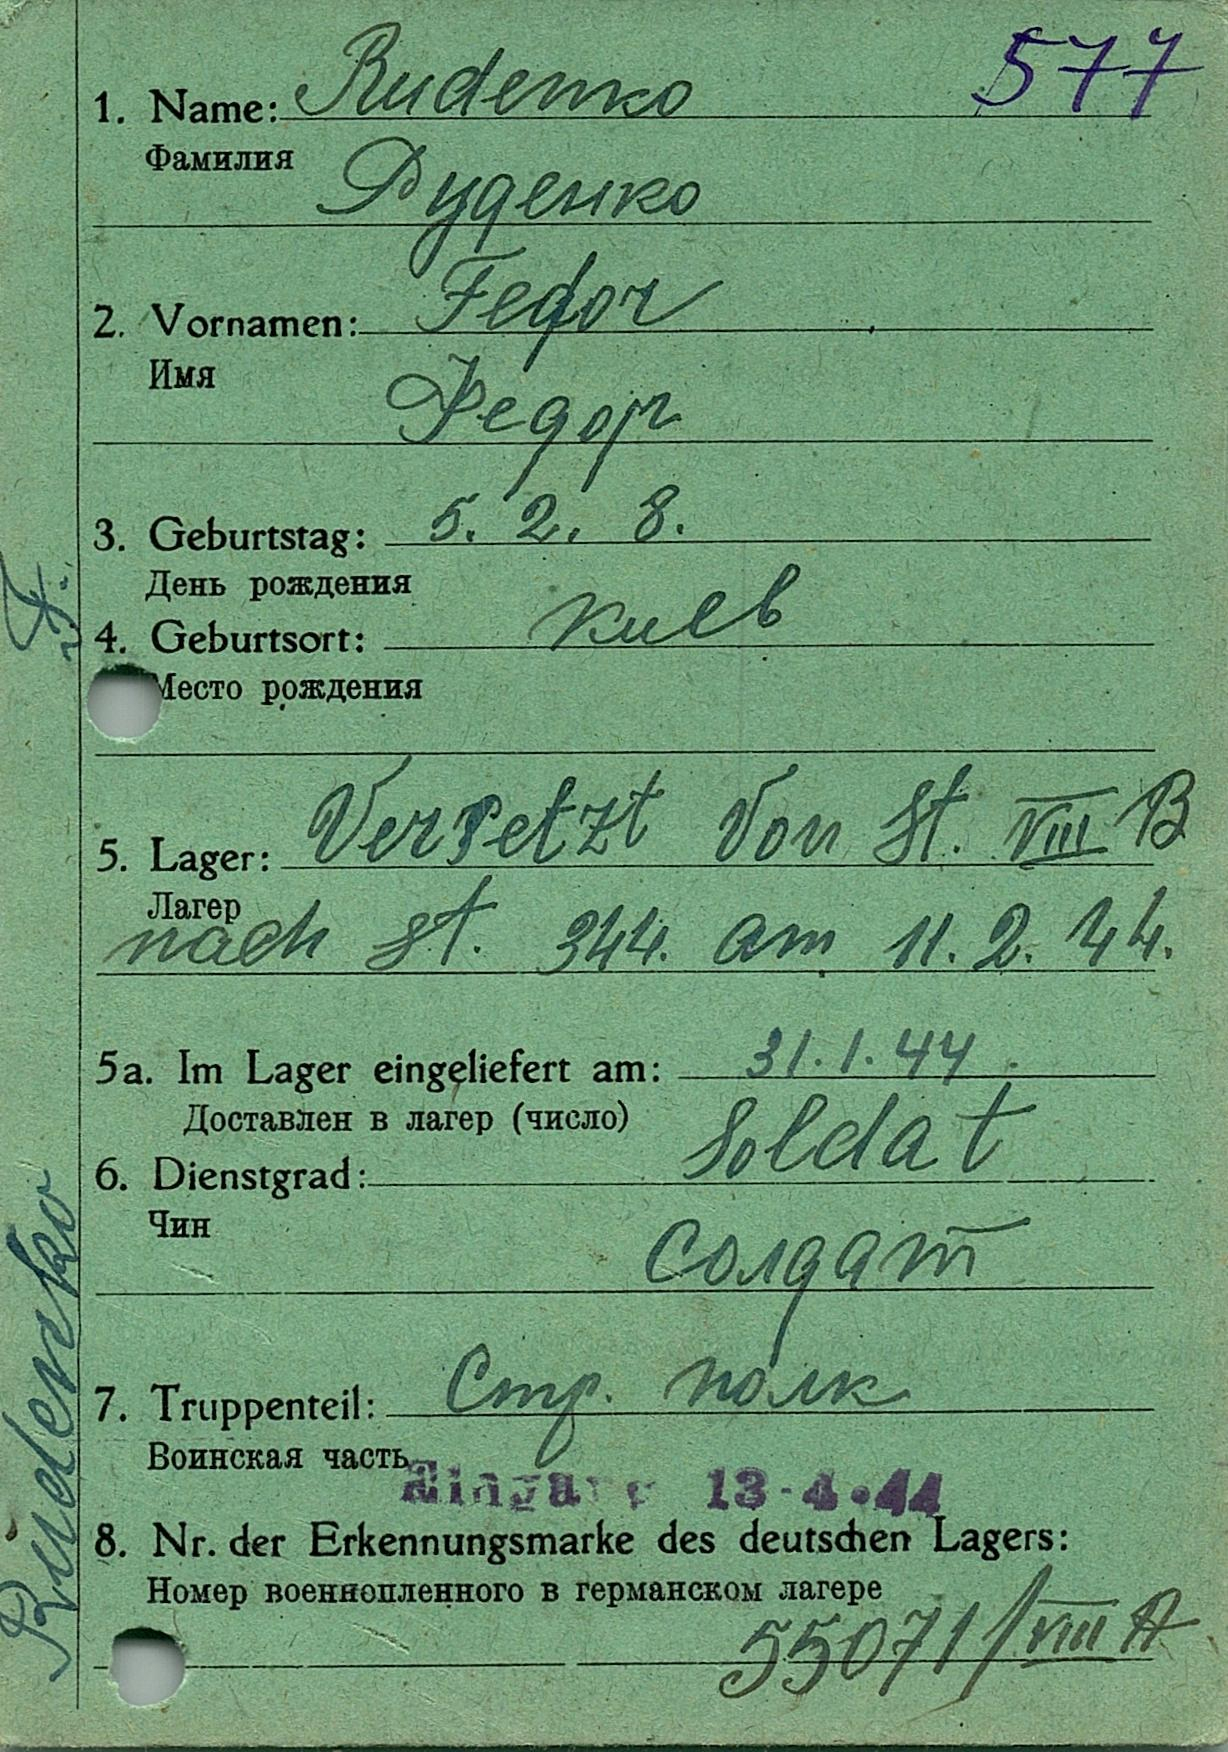 577
1. Name: Rudenko
Фамилия Руденко
2. Vornamen: Fedor
Имя
Федор
3. Geburtstag: 5. 2. 8.
День рождения
4. Geburtsort: Киев
Место рождения
5. Lager: Versetzt von St. VIII B
Лагер
nach St. 344. am 11. 2. 44.
5a. Im Lager eingeliefert am: 31. 1. 44
Доставлен в лагер (число)
6. Dienstgrad: Soldat
Чин
Солдат
7. Truppenteil: Стр. полк
Воинская часть
Eingang 13.4.44
8. Nr. der Erkennungsmarke des deutschen Lagers:
Номер военнопленного в германском лагере
55071/VIII A
Rudenko F.